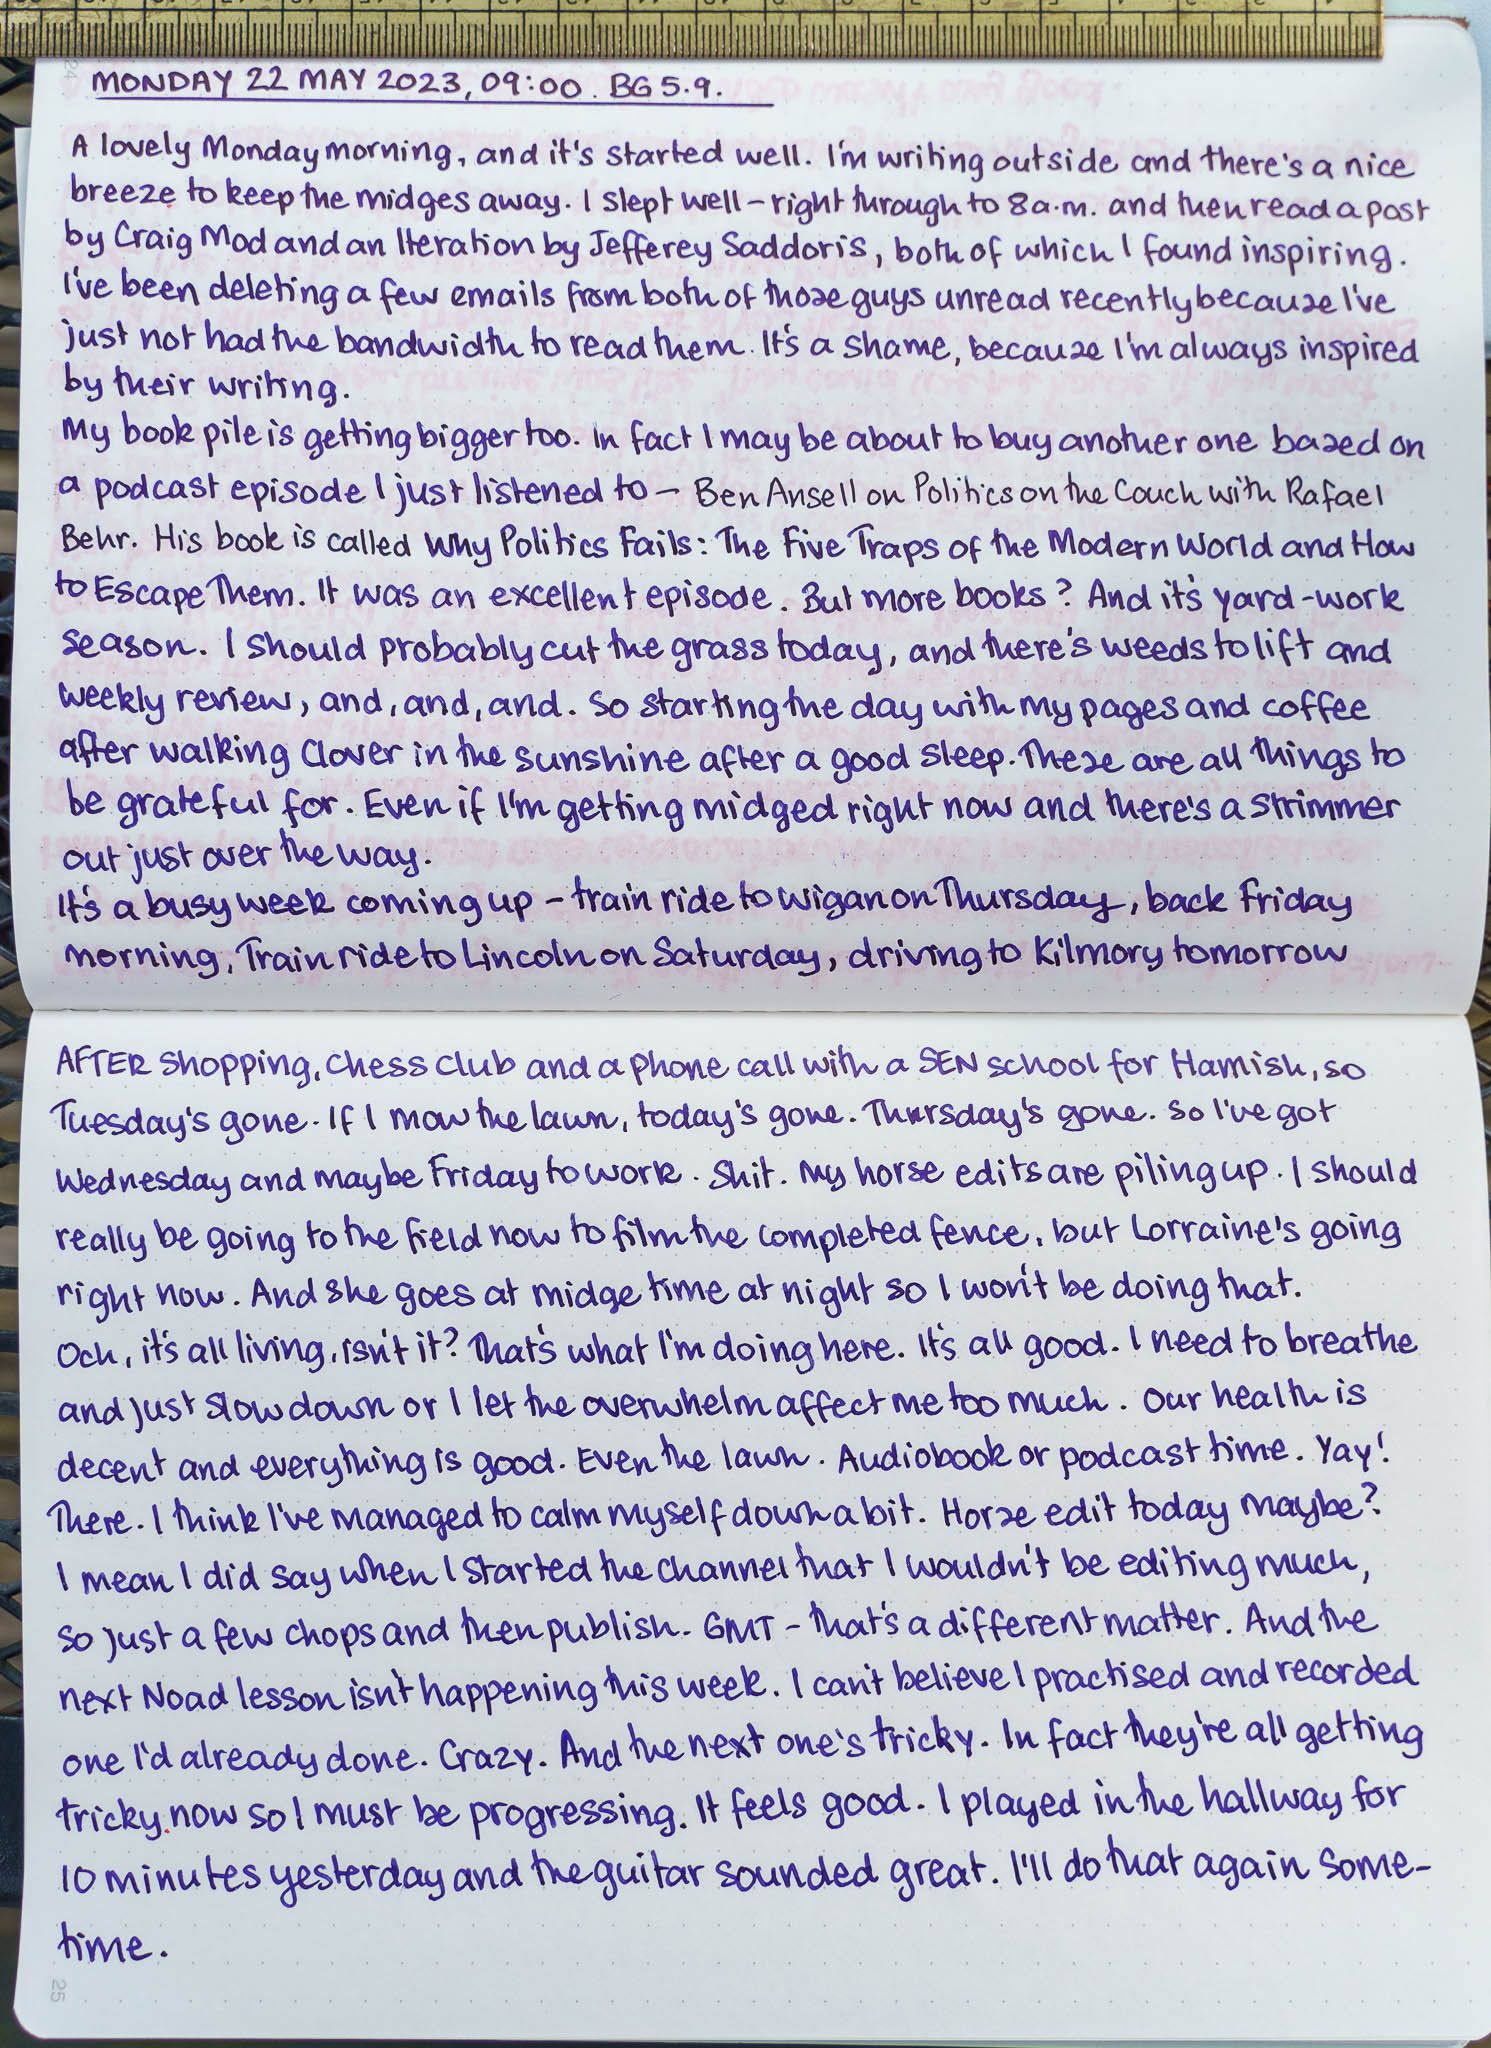 MONDAY 22 MAY 2023, 09:00. BG 5.9.
A lovely Monday morning, and it's started well. I'm writing outside and there's a nice
breeze to keep the midges away. I slept well – right through to 8a.m. and then read a post
by Craig Mod and an Iteration by Jefferey Saddoris, both of which I found inspiring.
I've been deleting a few emails from both of those guys unread recently because I've
just not had the bandwidth to read them. It's a shame, because I'm always inspired
by their writing.
My book pile is getting bigger too. In fact I may be about to buy another one based on
a podcast episode I just listened to – Ben Ansell on Politics on the Couch with Rafael
Behr. His book is called Why Politics Fails: The Five Traps of the Modern World and How
to Escape Them. It was an excellent episode. But more books? And it's yard-work
season. I should probably cut the grass today, and there's weeds to lift and
weekly review, and, and, and. So starting the day with my pages and coffee
after walking Clover in the sunshine after a good sleep. These are all things to
be grateful for. Even if I'm getting midged right now and there's a strimmer
out just over the way.
It's a busy week coming up – train ride to Wigan on Thursday, back Friday
morning, Train ride to Lincoln on Saturday, driving to Kilmory tomorrow
AFTER shopping, chess club and a phone call with a SEN school for Hamish, so
Tuesday's gone. If I mow the lawn, today's gone. Thursday's gone. So I've got
Wednesday and maybe Friday to work. Shit. My horse edits are piling up. I should
really be going to the field now to film the completed fence, but Lorraine's going
right now. And she goes at midge time at night so I won't be doing that.
Och, it's all living, isn't it? That's what I'm doing here. It's all good. I need to breathe
and just slow down or I let the overwhelm affect me too much. Our health is
decent and everything is good. Even the lawn. Audiobook or podcast time. Yay!
There. I think I've managed to calm myself down a bit. Horse edit today maybe?
I mean I did say when I started the channel that I wouldn't be editing much,
so just a few chops and then publish. GMT – that's a different matter. And the
next Noad lesson isn't happening this week. I can't believe I practised and recorded
one I'd already done. Crazy. And the next one's tricky. In fact they're all getting
tricky now so I must be progressing. It feels good. I played in the hallway for
10 minutes yesterday and the guitar sounded great. I'll do that again some-
time.
25